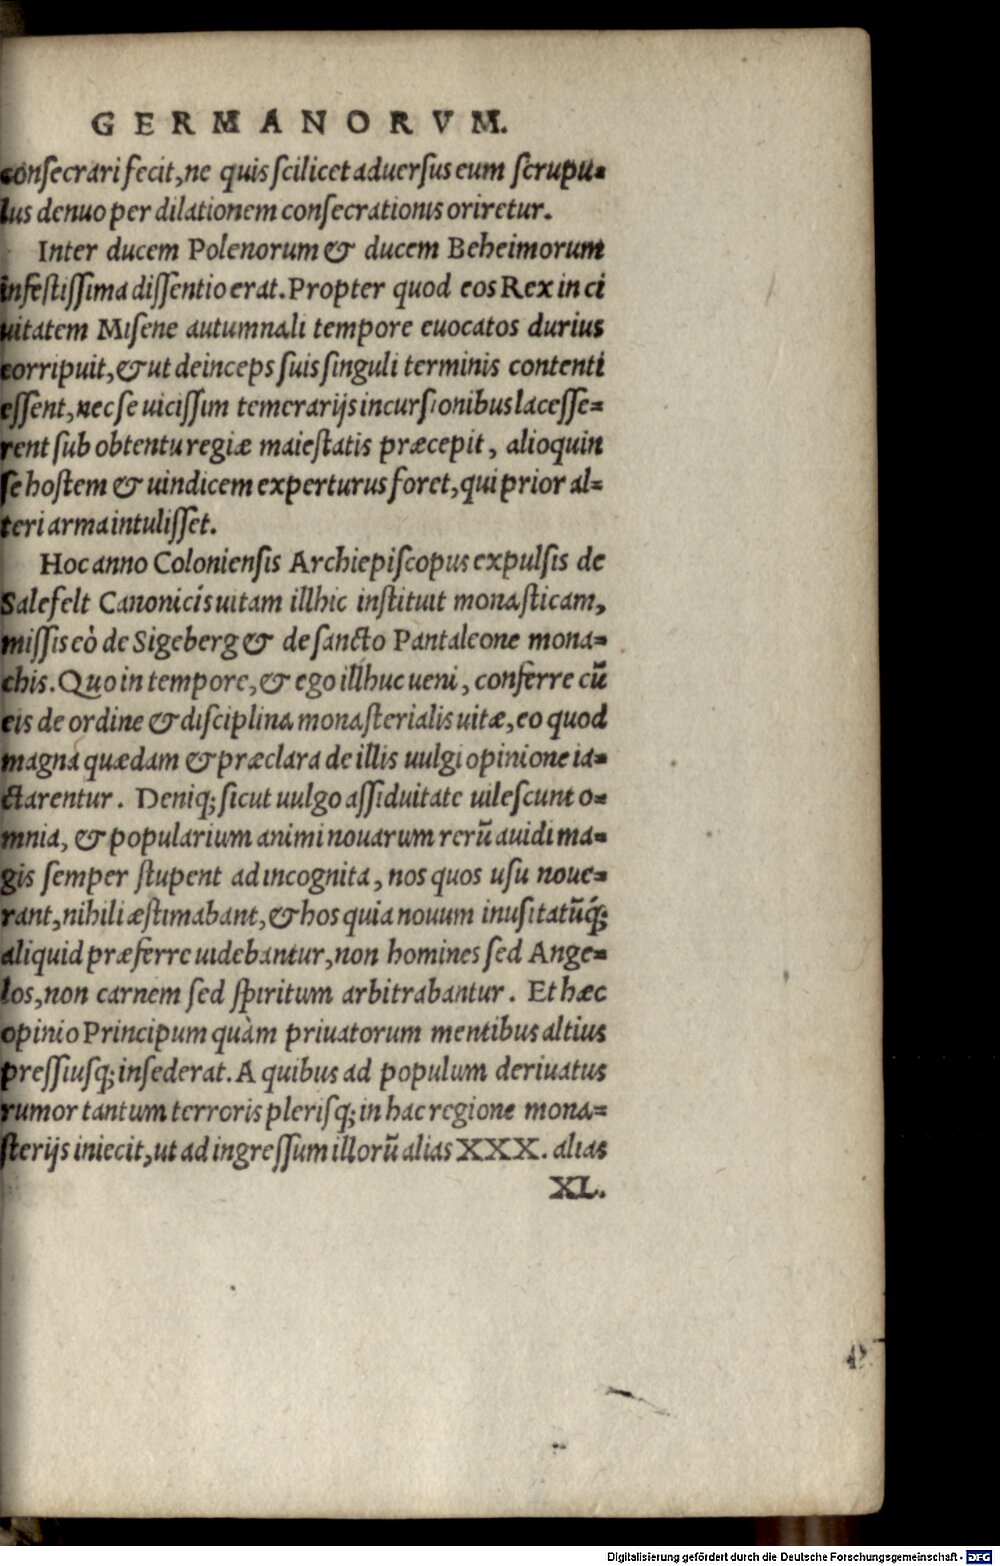 GERMANORVM.
consecrari fecit, ne quis scilicet aduersus eum scrupu-
lus denuo per dilationem consecrationis oriretur.
Inter ducem Polenorum & ducem Beheimorum
infestissima dissentio erat. Propter quod eos Rex in ci
uitatem Misene autumnali tempore euocatos durius
corripuit, & ut deinceps suis singuli terminis contenti
essent, nec se uicissim temerarijs incursionibus lacesse-
rent sub obtentu regiæ maiestatis præcepit, alioquin
se hostem & uindicem experturus foret, qui prior al-
teri arma intulisset.
Hoc anno Coloniensis Archiepiscopus expulsis de
Salefelt Canonicis uitam illhic instituit monasticam,
missis eò de Sigeberg & de sancto Pantaleone mona-
chis. Quo in tempore, & ego illhuc ueni, conferre cũ
eis de ordine & disciplina monasterialis uitæ, eo quod
magna quædam & præclara de illis uulgi opinione ia-
ctarentur. Deniq; sicut uulgo assiduitate uilescunt o-
mnia, & popularium animi nouarum rerũ auidi ma-
gis semper stupent ad incognita, nos quos usu noue-
rant, nihili æstimabant, & hos quia nouum inusitatũq́;
aliquid præferre uidebantur, non homines sed Ange-
los, non carnem sed spiritum arbitrabantur. Et hæc
opinio Principum quàm priuatorum mentibus altius
pressiusq; insederat. A quibus ad populum deriuatus
rumor tantum terroris plerisq; in hac regione mona-
sterijs iniecit, ut ad ingressum illorũ alias XXX. alias
XL.
Digitalisierung gefördert durch die Deutsche Forschungsgemeinschaft - DFG